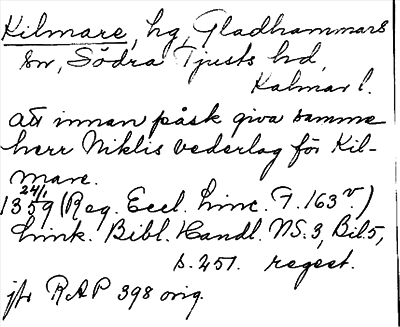 Kilmare, hg, Gladhammars
sn, Södra Tjusts hd,
Kalmar l.
att innan påsk giva samme
herr Niklis vederlag för Kil-
mare.
24/1
1359 (Reg. Eccl. Linc. F. 163v.)
Link. Bibl. Handl. NS. 3, Bil. 5,
s. 251. regest.
jfr RAP 398 orig.